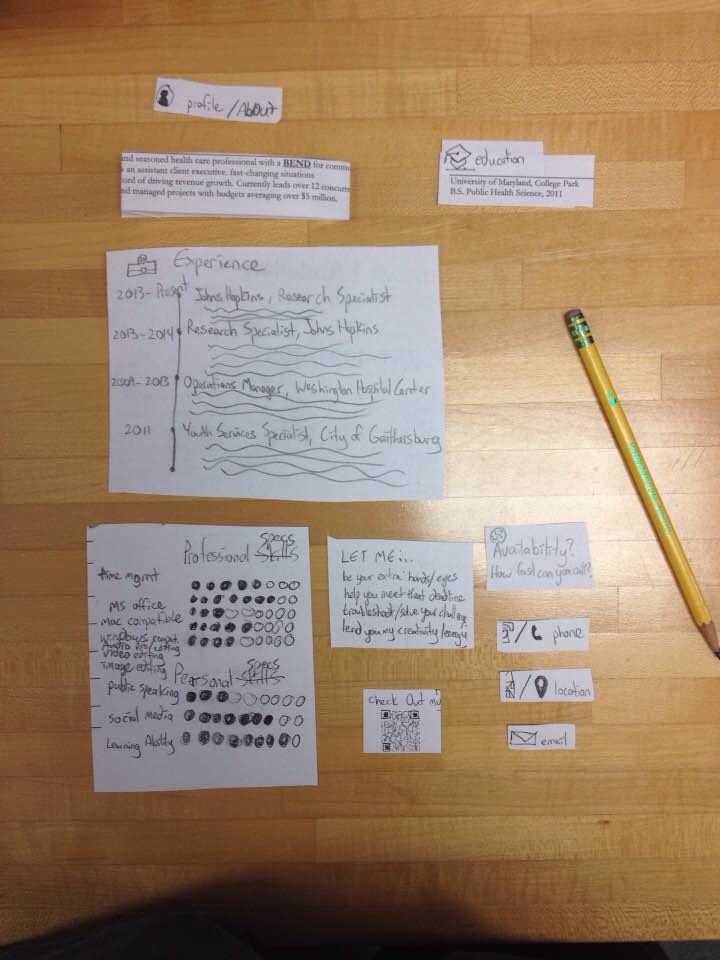 profile/About
and seasoned health care professional with a BEND for
s an assistant client executive. fast-changing situations
ord of driving revenue growth. Currently leads over 12
nd managed projects with budgets averaging over $5 million,
education
University of Maryland, College Park
B.S. Public Health Science, 2011
Experience
2013-Present Johns Hopkins, Research Specialist
2013-2014 Research Specialist, Johns Hopkins
2009-2013 Operations Manager, Washington Hospital Center
2011 Youth Services Specialist, City of Gaithersburg
Specs
Professional Skills
time mgmt
MS office
Mac compatible
Windows compat.
Audio editing
video editing
image editing
Specs
Pearsonal Skills
public speaking
social media
Learning Ability
LET ME...
be your extra hands/eyes
help you meet that deadline
troubleshoot/solve your challenge
lend you my creativity/energy
Check Out my
Availability?
How fast can you call?
/ phone
/ location
email